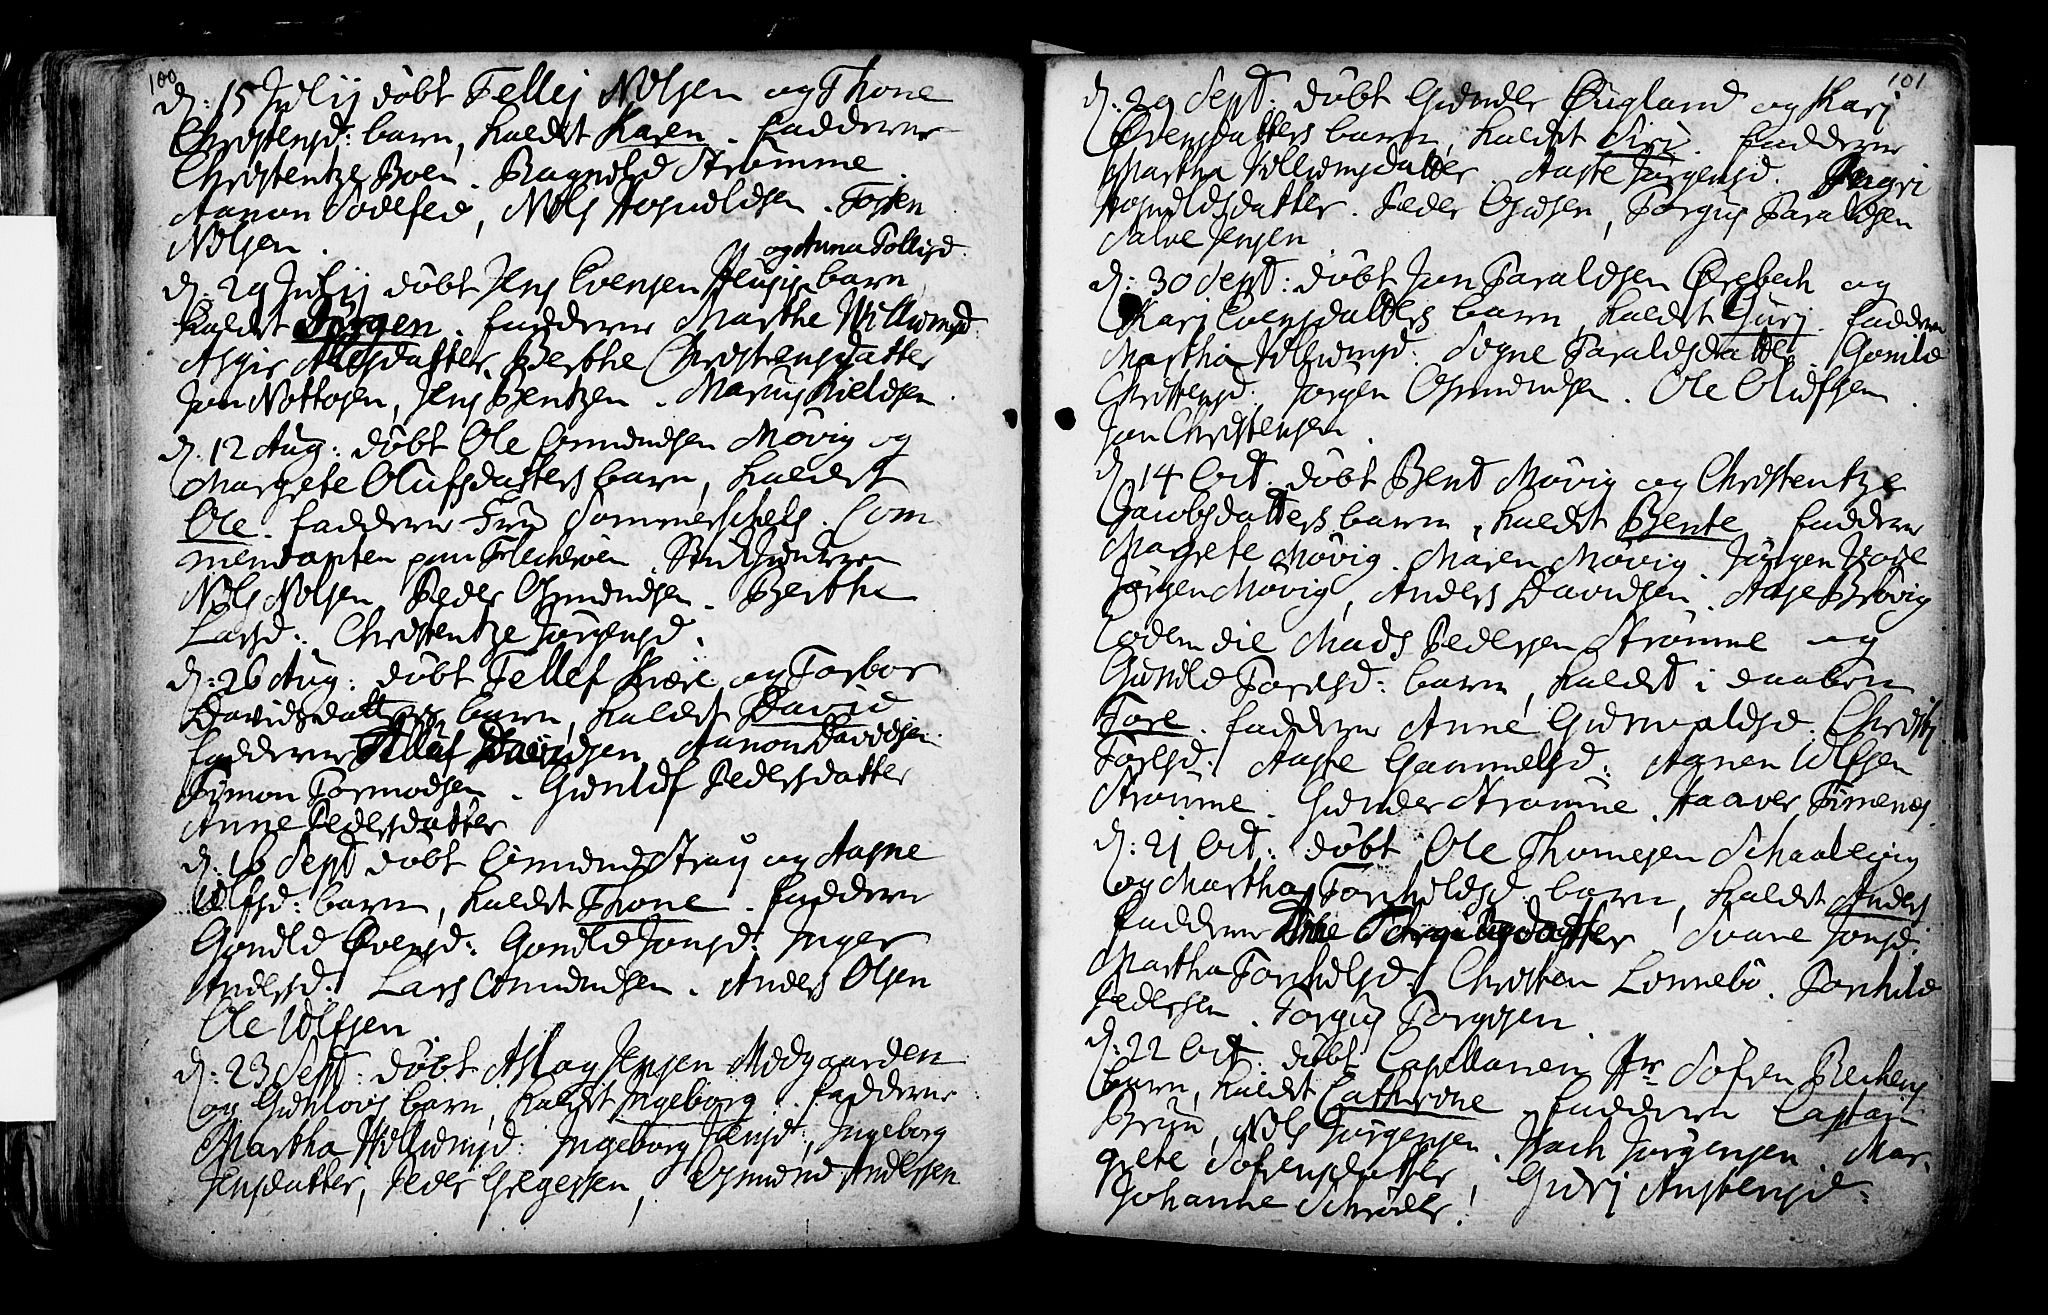 100
d: 15 Julij döbt Tellef Nilsen og Thone
Christensd: barn, kaldet Karen. faddere
Christentze Boen. Ragnild Strömme.
Aanon Sodefed, Nils Hognildsen. Tosten
Nilsen.
og Anna Tollisd.
d: 29 Julij döbt Jens Evensen barn
kaldet Jörgen. faddere Marthe Villumsd.
Asgier Nilsdatter. Berthe Christensdatter
Jon Nottosen, Jens Bentzen. Marcus Kieldsen.
d: 12 Aug: döbt Ole Omundsen Mövig og
Margrete Olufsdatters barn, kaldet
Ole. faddere Fru Sommerschels. Com
mendanten paa Fleckeröen. Stüchjunckeren
Nils Nilsen Peder Osmundsen. Berthe
Larsd: Christentze Jörgensd.
d: 26 Aug: döbt Tellef Kiære og Torbor
Davidsdatters barn, kaldet David
faddere Tellef Davidsen, Aanon Davidsen.
Simon Tormodsen. Gunluf Pedersdatter
Anne Pedersdatter
d: 16 Sept döbt Omund Stray og Aagne
Ulfsd: barn, kaldet Thone. faddere
Gonild Evensd: Gonild Jonsd: Inger
Andersd: Lars Omundsen. Anders Olsen
Ole Ulfsen.
d: 23 Sept: döbt Aslag Jensen Midgaarden
og Gunlovs barn, kaldet Ingeborg. faddere
Martha Villumsd: Ingeborg Jensd:, Ingeborg
Jensdatter, Peder Gregersen, Osmund Andersen
101
d: 29 Sept: döbt Gunder Öugland og Karj
Evensdatters barn, kaldet Siri. faddere
Martha Villumsdatter. Aaste Jörgensd. Ingri
Hognildsdatter. Peder Olusen, Torgus Taraldsen
Salve Jensen.
d: 30 Sept: döbt Jon Taraldsen Örebech og
Karj Evensdatters barn, kaldet Gurj. faddere
Martha Villumsd: Sogne Taraldsdatter. Gonild
Christensd. Jörgen Osmundsen. Ole Olufsen.
Jon Christensen.
d: 14 Oct. döbt Bent Mövig og Christentze
Jacobsdatters barn, kaldet Bente faddere
Margrete Mövig. Maren Mövig. Jörgen Voje
Jörgen Mövig, Anders Davidsen. Aage Brövig
Eodem die Mads Pedersen Strömme og
Gunild Toresd: barn, kaldet i daaben
Tore. faddere Anne Gunvaldsd. Christj
Toresd: Aaste Gammelsd: Aanen Ulfsen
Strömme. Gunder Strömme. Haaver Timenes.
d: 21 Oct: döbt Ole Thomesen Schaalevig
og Martha Torkildsd. barn, kaldet Anders
faddere Torgilbsdatter. Svane Jonsd.
Martha Torkildsd. Christen Lonnebo. Torkild
Pedersen. Torgus Torgusen.
d: 22 Oct. döbt Capellanen Hr Söfren Bechens
barn, kaldet Cathrine. faddere Captain
Brun, Nils Jörgensen. Isach Jörgensen. Mar
grete Söfrensdatter, Gurj Anstensd:
Johanne Schröder.